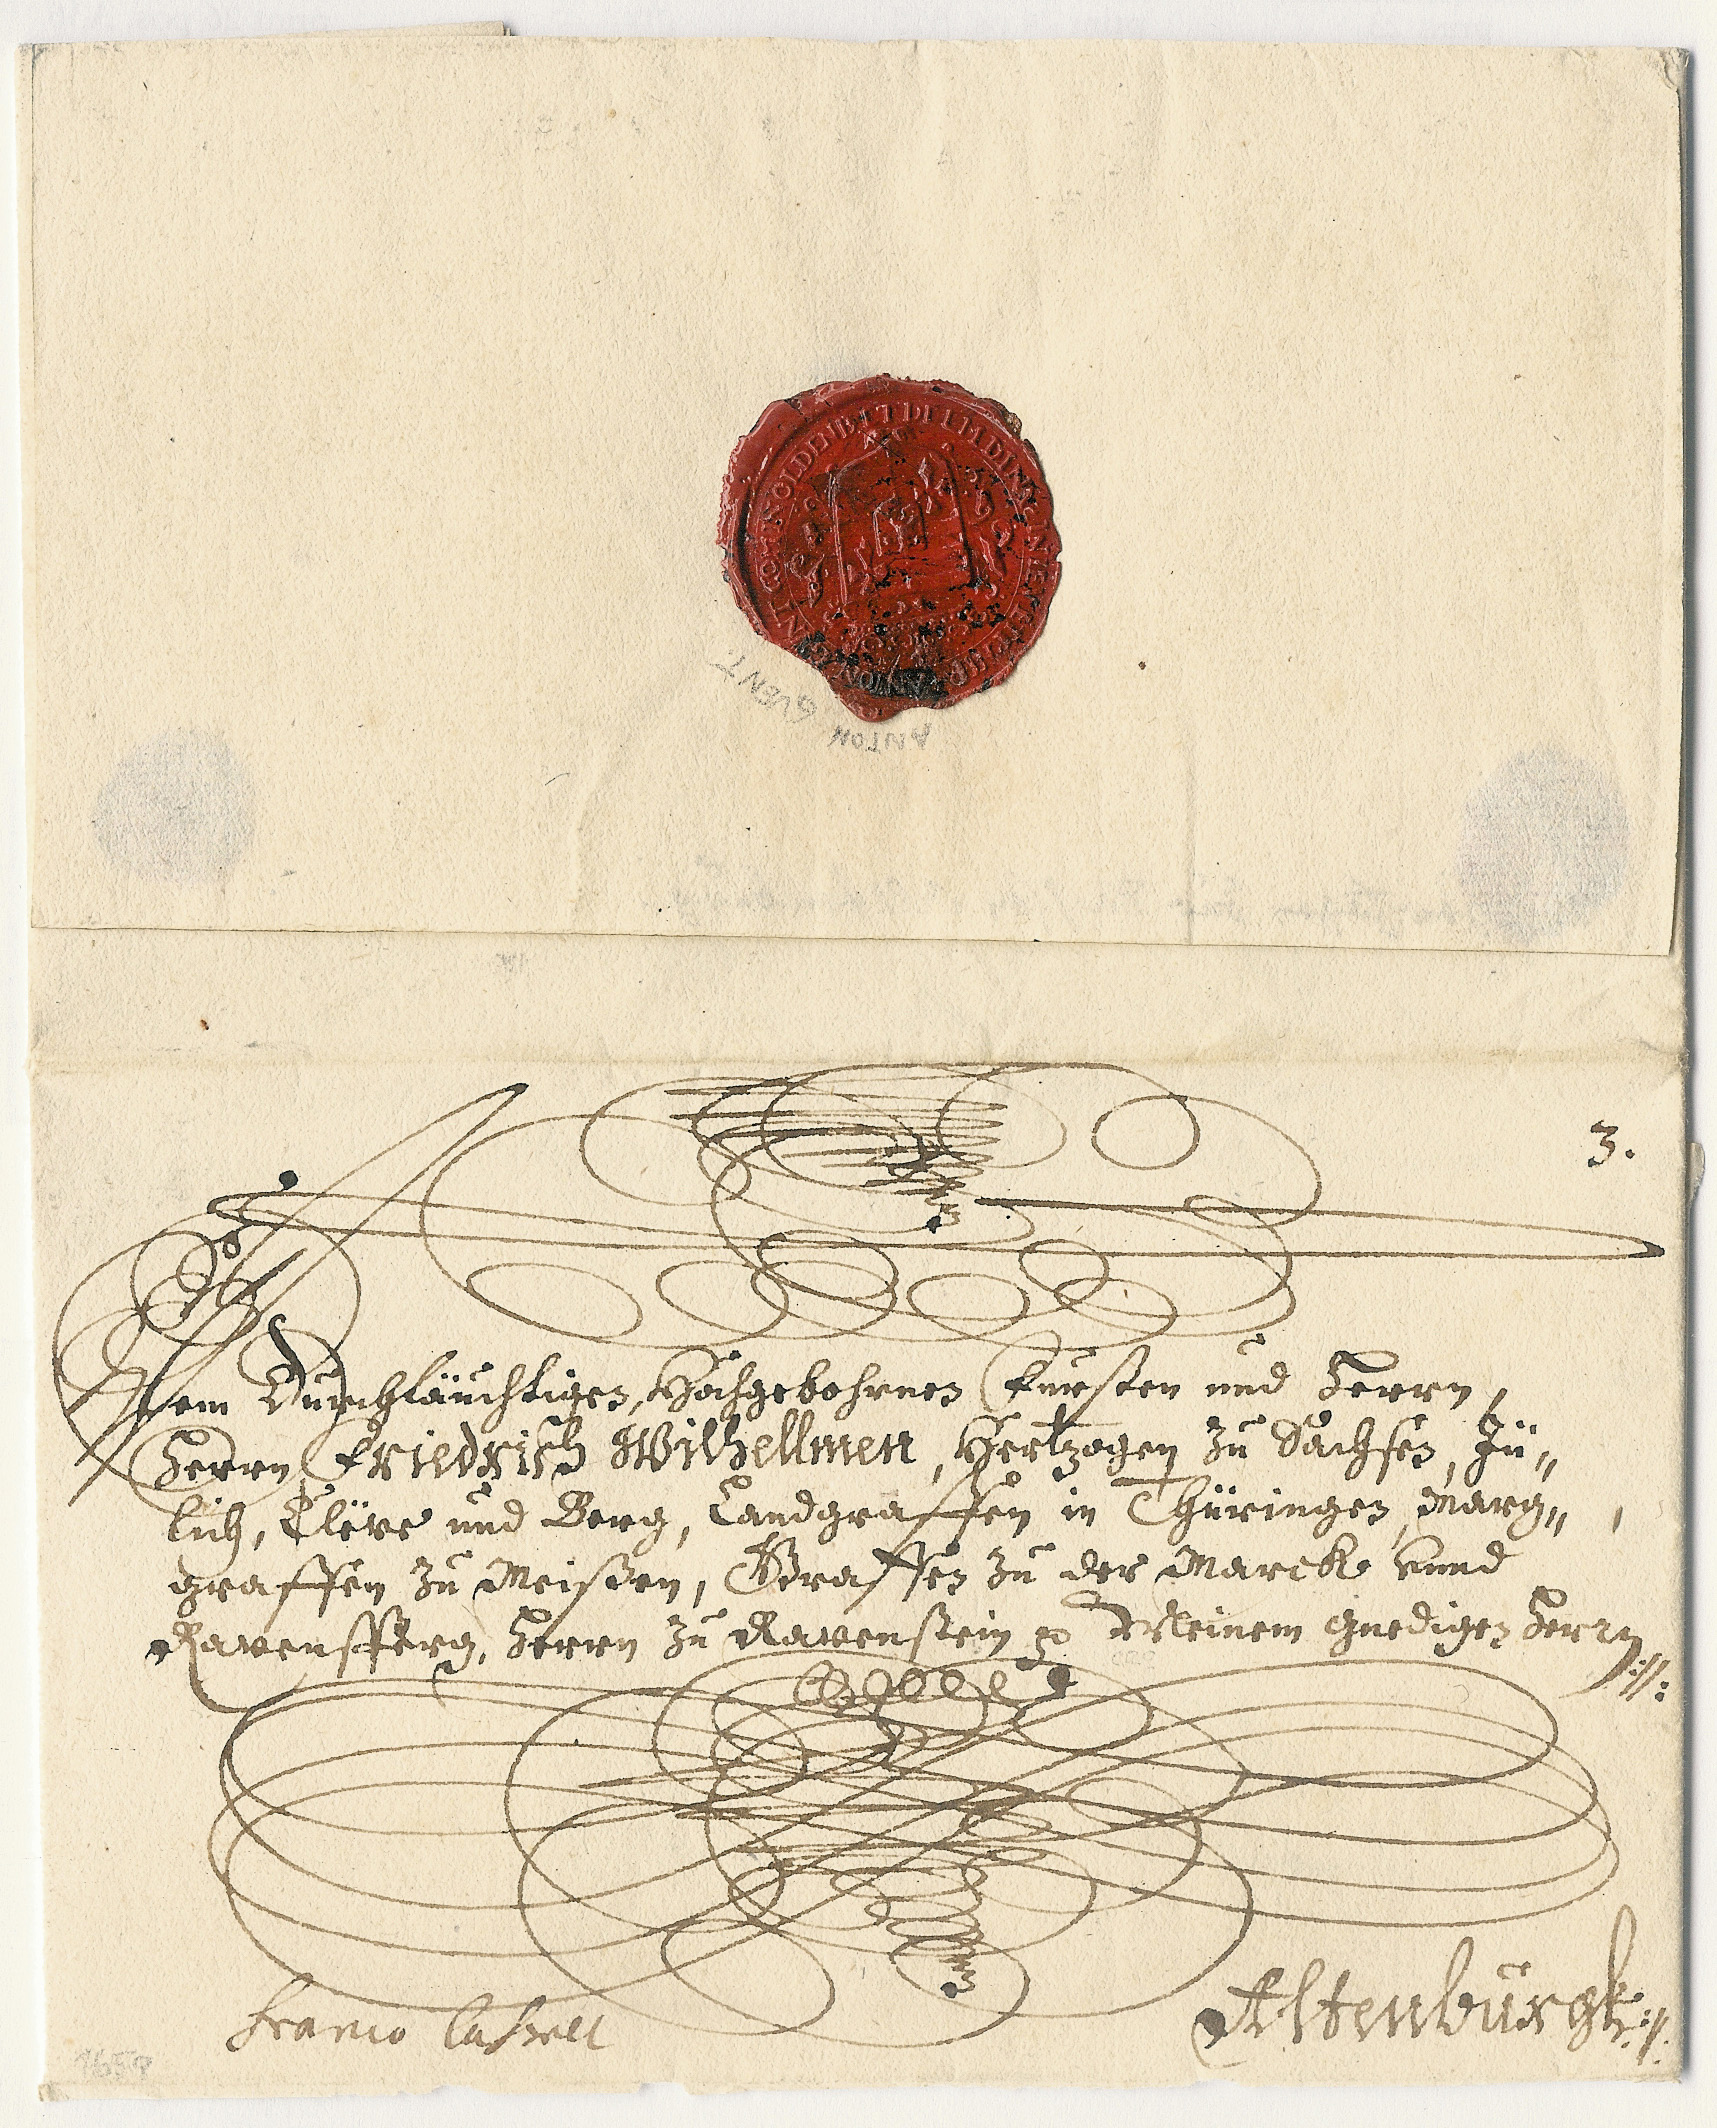 ANTON GUENT
3.
Dem Durchläuchtigen, Hochgebohrnen Fürsten und Herrn,
Herrn Friedrich Wilhellmen, Hertzogen zu Sachsen, Jü„
lich, Cleve und Berg, Landgraffen in Thüringen, Marg„
graffen zu Meißen, Graffen zu der Marck vnnd
Ravensperg, Herrn zu Ravenstein ꝛc Meinem gnedigen Herrn
Altenburgk
franco Cassell